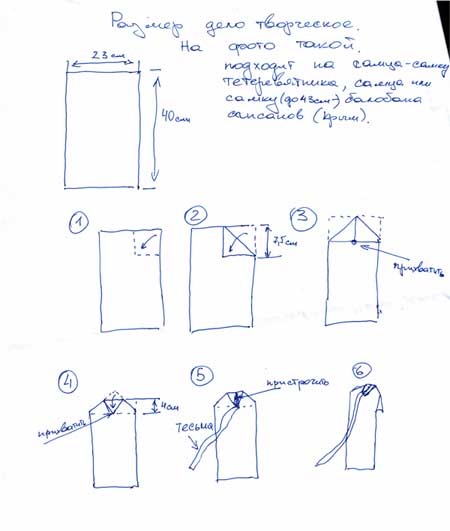 Размер дело творческое.
На фото такой.
подходит на самца-самку
тетеревятника, самца или
самку (до 43см) балобана
сапсанов (крым).
23 см
40 см
1
2
7,5 см
3
прихватить
4
4 см
прихватить
5
пристрочить
тесьма
6